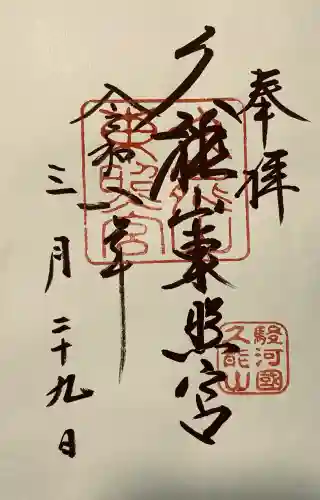 奉拝
久能山東照宮
令和八年
三月二十九日
東照宮
駿河國
久能山